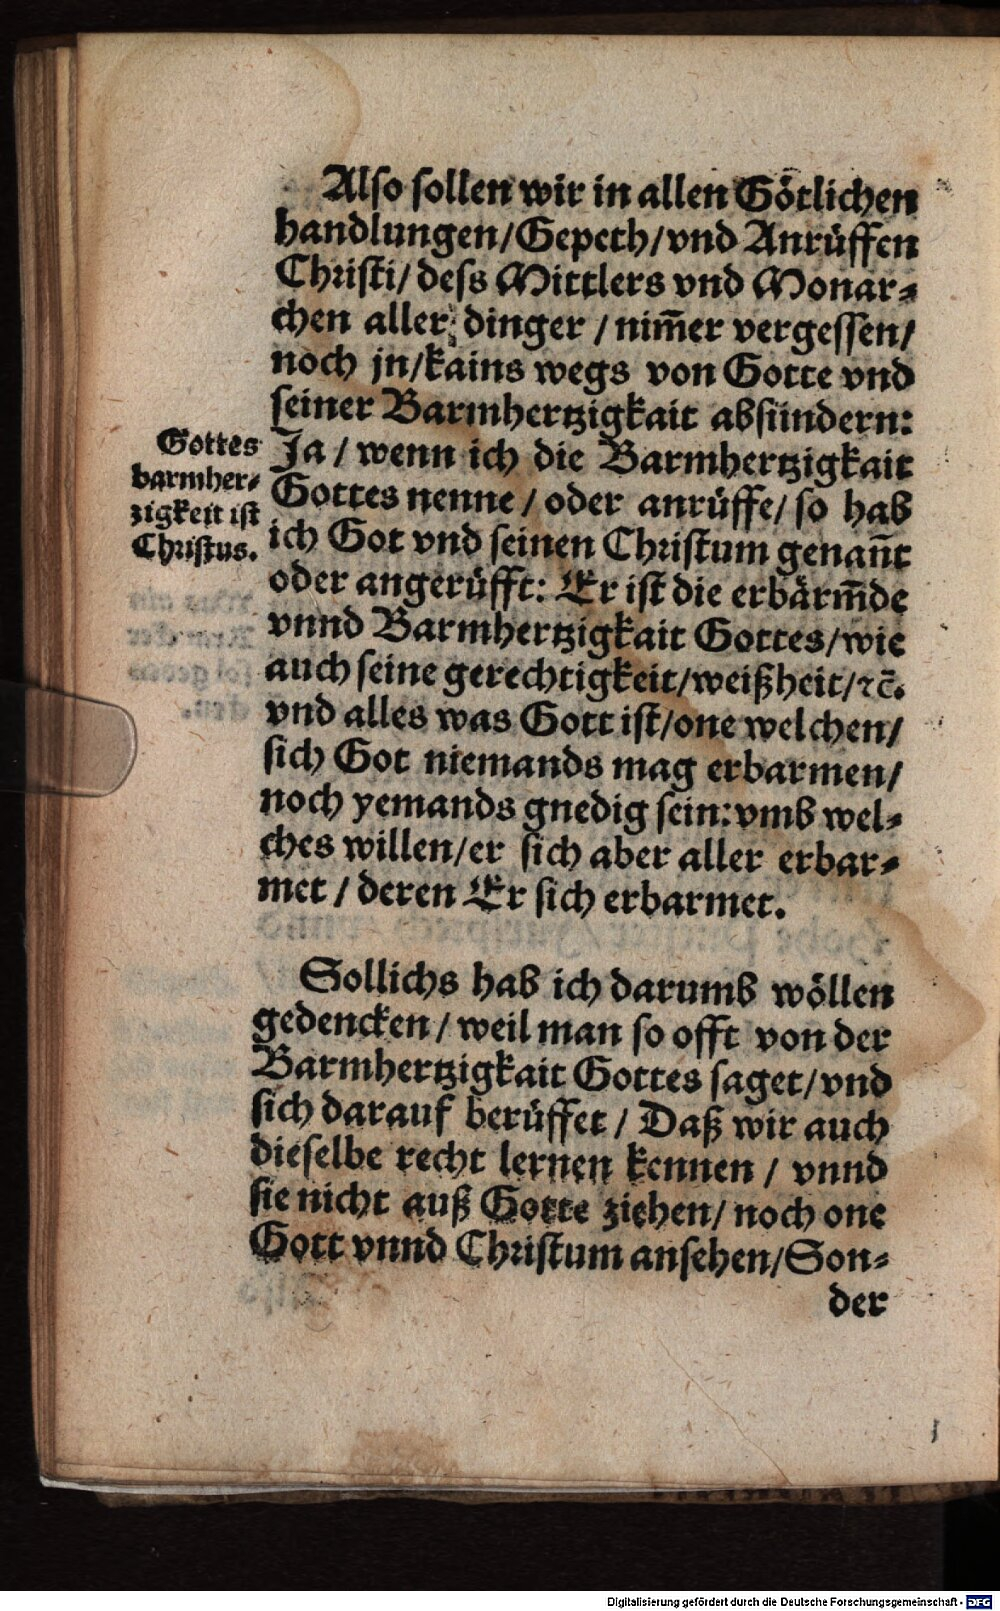 Also sollen wir in allen Götlichen
handlungen/Gepeth/vnd Anrüffen
Christi/ dess Mittlers vnd Monar⸗
chen aller dinger / nim̃er vergessen/
noch jn/kains wegs von Gotte vnd
seiner Barmhertzigkait absündern:
Gottes
barmher⸗
zigkeit ist
Christus.
Ja / wenn ich die Barmhertzigkait
Gottes nenne / oder anrüffe/ so hab
ich Got vnd seinen Christum genañt
oder angerüfft: Er ist die erbärm̃de
vnnd Barmhertzigkait Gottes/wie
auch seine gerechtigkeit/weißheit/ꝛc̃.
vnd alles was Gott ist/one welchen/
sich Got niemands mag erbarmen/
noch yemands gnedig sein: vmb wel⸗
ches willen/er sich aber aller erbar⸗
met / deren Er sich erbarmet.
Sollichs hab ich darumb wöllen
gedencken / weil man so offt von der
Barmhertzigkait Gottes saget/vnd
sich darauf berüffet / Daß wir auch
dieselbe recht lernen kennen / vnnd
sie nicht auß Gotte ziehen/ noch one
Gott vnnd Christum ansehen/Son⸗
der
Digitalisierung gefördert durch die Deutsche Forschungsgemeinschaft - DFG